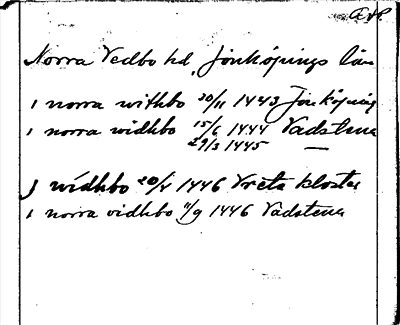 A.P.
Norra Vedbo hd, Jönköpings län
i norra withbo 20/11 1443 Jönköping
i norra widhbo 15/6 1444 Vadstena
29/3 1445 —
J widhbo 20/4 1446 Vreta kloster
i norra vidhbo 11/9 1446 Vadstena